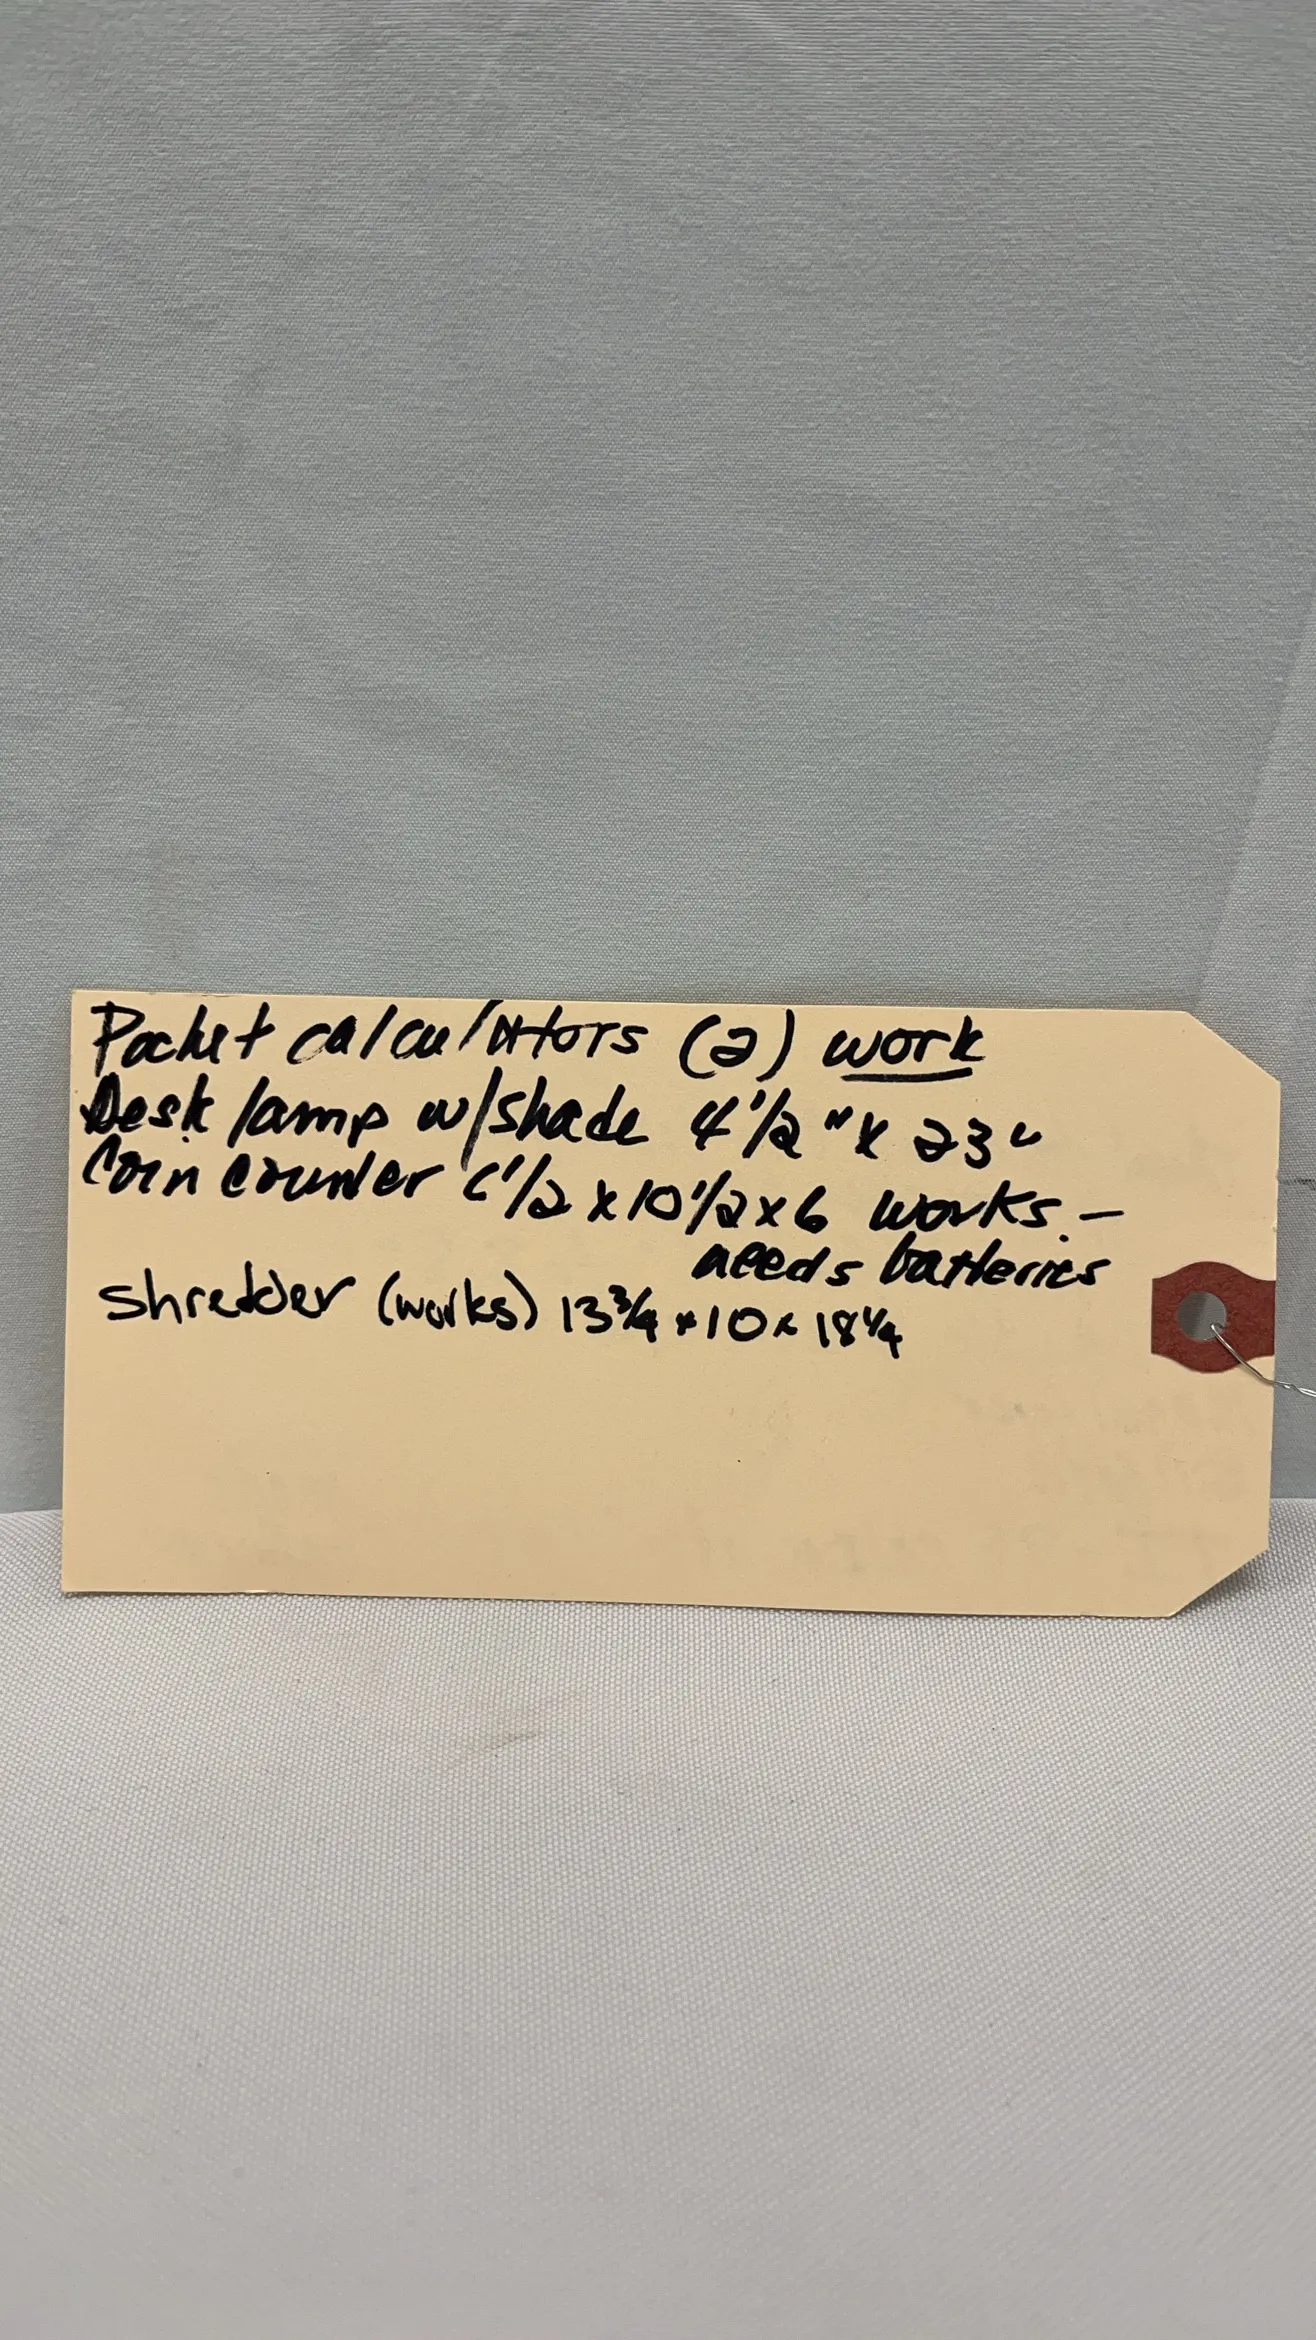 Pocket calculators (2) work
Desk lamp w/shade 4 1/2" x 23"
Coin counter 6 1/2 x 10 1/2 x 6 works -
needs batteries
shredder (works) 13 3/4 x 10 x 18 1/4